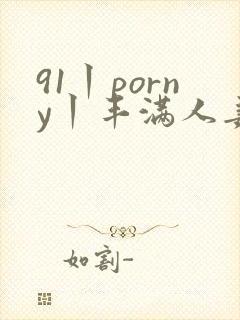 91丨porn
y丨丰满人
如割-